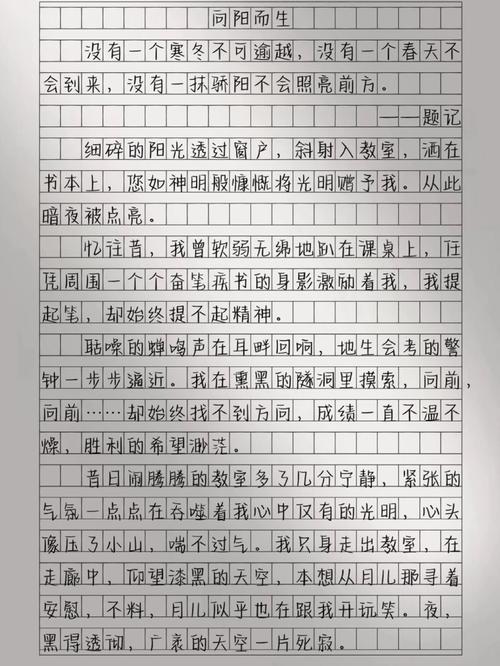 向阳而生
没有一个寒冬不可逾越，没有一个春天不
会到来，没有一抹骄阳不会照亮前方。
——题记
细碎的阳光透过窗户，斜射入教室，洒在
书本上，您如神明般慷慨将光明赠予我。从此
暗夜被点亮。
忆往昔，我曾软弱无绵地趴在课桌上，任
凭周围一个个奋笔疾书的身影激励着我，我提
起笔，却始终提不起精神。
聒噪的蝉鸣声在耳畔回响，地生会考的警
钟一步步逼近。我在熏黑的隧洞里摸索，向前，
向前……却始终找不到方向，成绩一直不温不
燥，胜利的希望渺茫。
昔日闹腾腾的教室多了几分宁静，紧张的
气氛一点点在吞噬着我心中仅有的光明，心头
像压了小山，喘不过气。我只身走出教室，在
走廊中，仰望漆黑的天空，本想从月儿那寻着
安慰，不料，月儿似乎也在跟我开玩笑。夜，
黑得透彻，广袤的天空一片死寂。